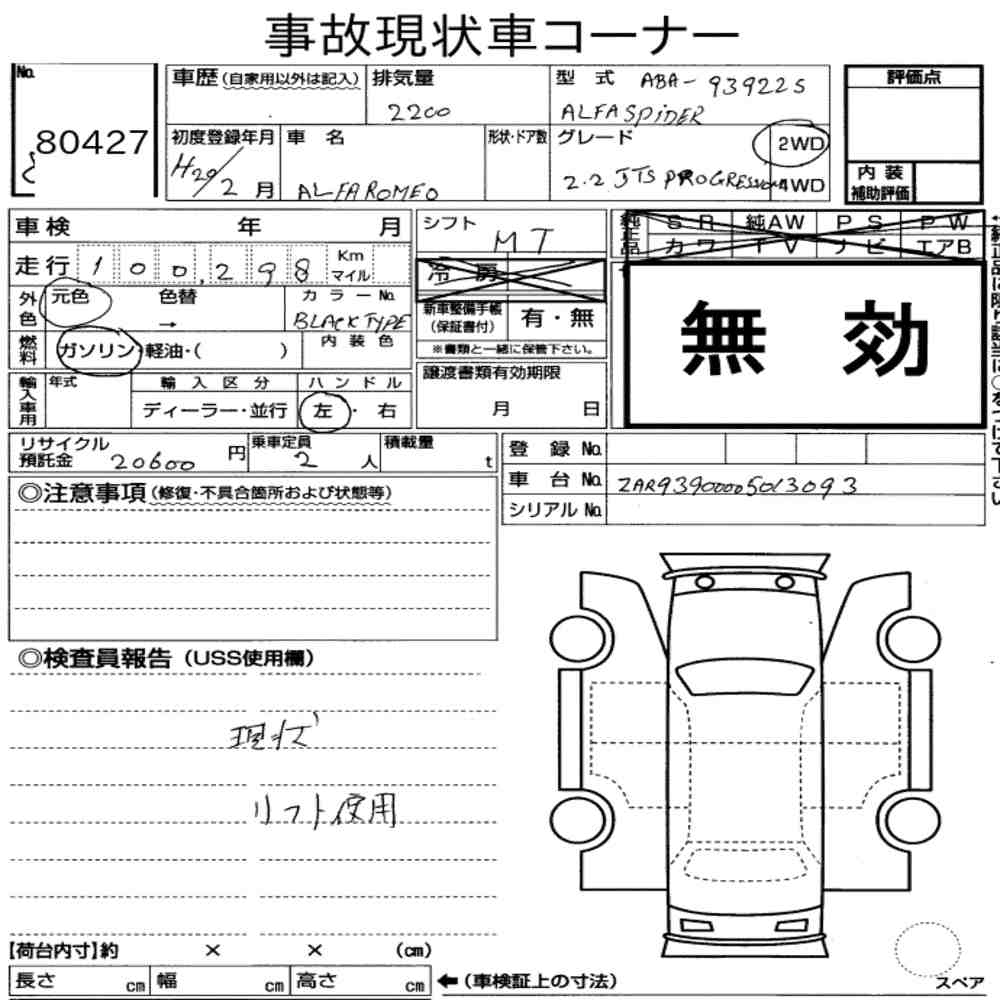 事故現状車コーナー
No.
80427
車歴(自家用以外は記入)
排気量
2200
型式 ABA-939225
ALFASPIDER
評価点
内装
補助評価
初度登録年月
H20/2月
車名
ALFAROMEO
形状・ドア数
グレード
2.2 JTS PROGRESSION
2WD
4WD
車検 年 月
走行 100,298 Km マイル
外色
元色 色替
→
カラーNo.
BLACKTYPE
燃料
ガソリン・軽油・( )
内装色
輸入車用
年式
輸入区分
ディーラー・並行
ハンドル
左・右
シフト
MT
冷房
新車整備手帳
(保証書付)
有・無
※書類と一緒に保管下さい。
譲渡書類有効期限
月 日
純正品
SR 純AW PS PW
カワ TV ナビ エアB
無効
リサイクル
預託金 20600円
乗車定員
2人
積載量
t
登録No.
車台No. ZAR93900005013093
シリアルNo.
◎注意事項(修復・不具合箇所および状態等)
◎検査員報告(USS使用欄)
現状
リフト使用
【荷台内寸】約 × × (cm)
長さ cm 幅 cm 高さ cm
←(車検証上の寸法)
スペア